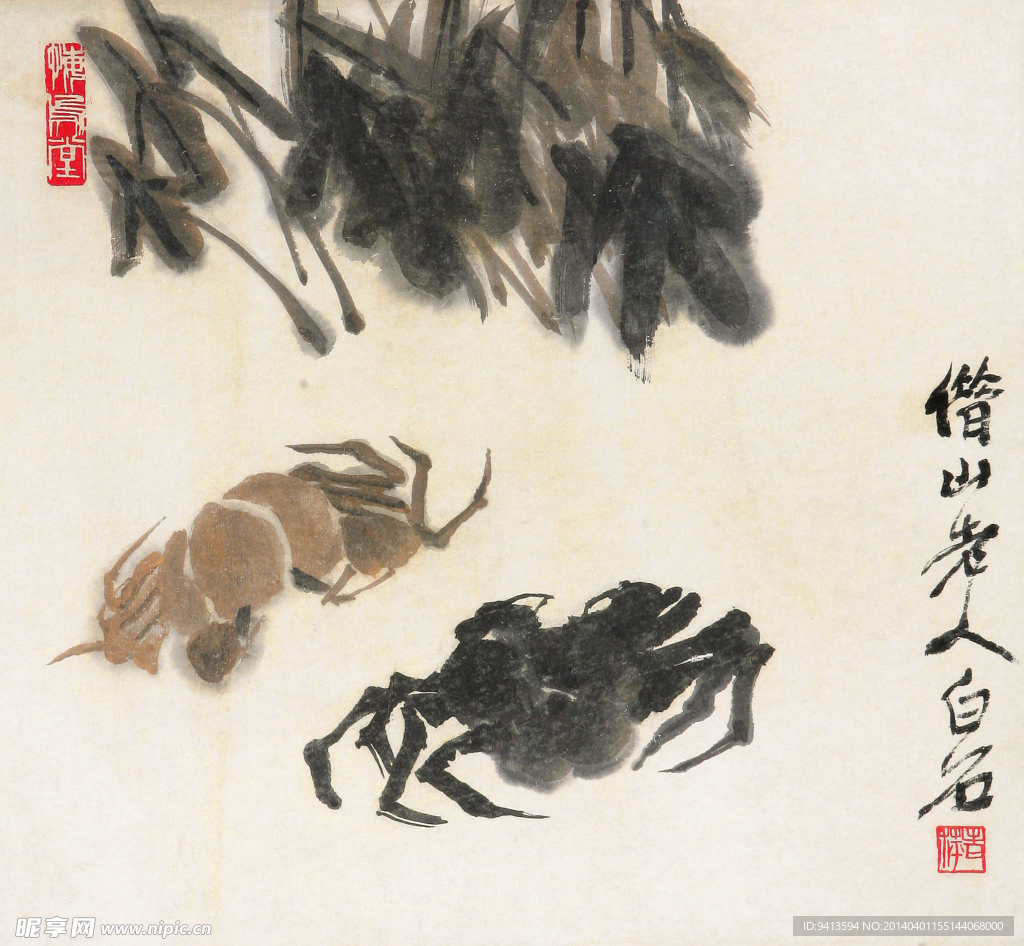 悔烏堂
借山老人白石
老萍
昵享网 www.nipic.cn
ID:9413594 NO:20140401155144068000